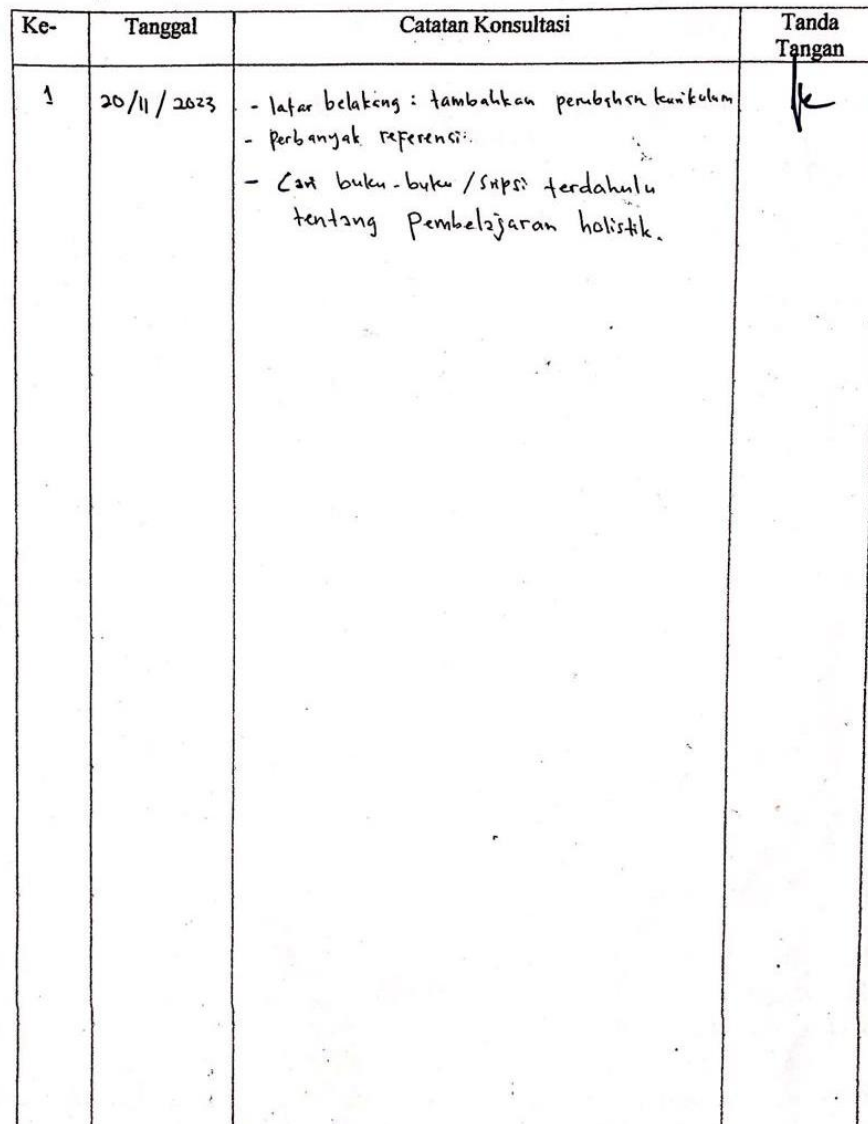 Ke- Tanggal Catatan Konsultasi Tanda Tangan
1 20/11/2023 - latar belakang : tambahkan perubahan kurikulum
- Perbanyak referensi
- Cari buku-buku / Skripsi terdahulu
tentang Pembelajaran holistik.